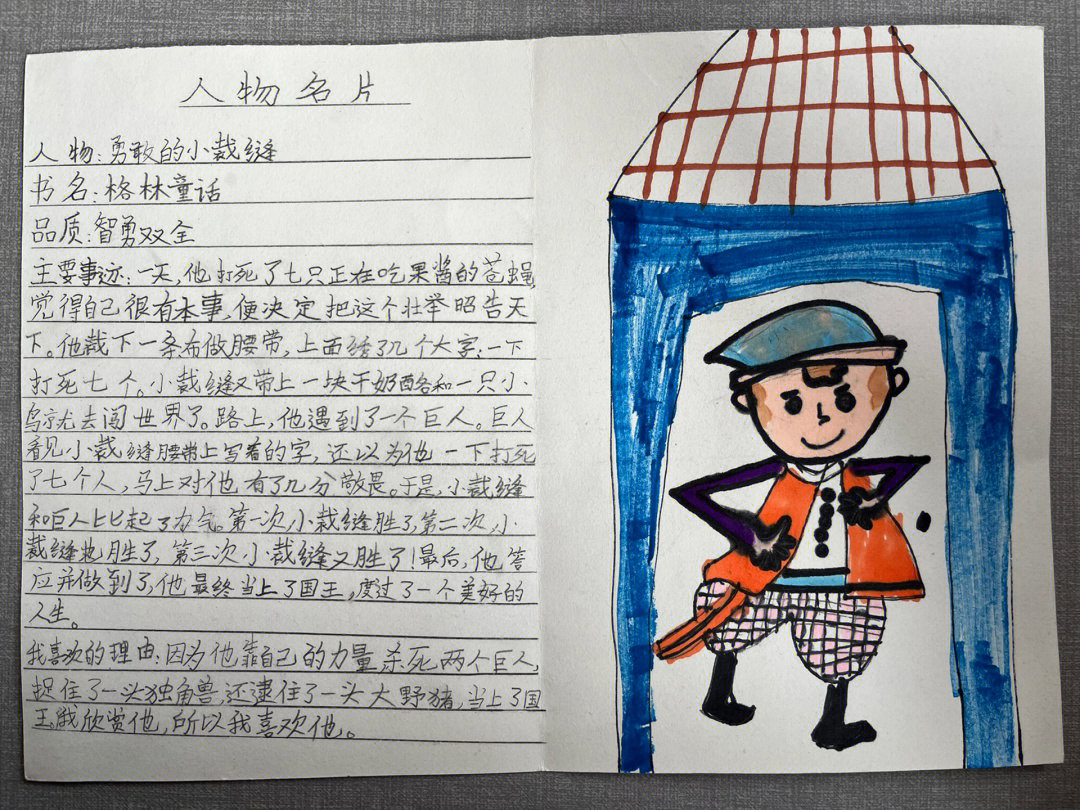 人物名片
人物:勇敢的小裁缝
书名:格林童话
品质:智勇双全
主要事迹:一天,他打死了七只正在吃果酱的苍蝇,
觉得自己很有本事,便决定把这个壮举昭告天
下。他裁下一条布做腰带,上面绣了几个大字:一下
打死七个。小裁缝又带上一块干奶酪和一只小
鸟就去闯世界了。路上,他遇到了一个巨人。巨人
看见小裁缝腰带上写着的字,还以为他一下打死
了七个人,马上对他有了几分敬畏。于是,小裁缝
和巨人比起了力气。第一次,小裁缝胜了,第二次,小
裁缝也胜了,第三次小裁缝又胜了!最后,他答
应并做到了,他最终当上了国王,度过了一个美好的
人生。
我喜欢的理由:因为他靠自己的力量杀死两个巨人,
捉住了一头独角兽,还逮住了一头大野猪,当上了国
王,我欣赏他,所以我喜欢他。